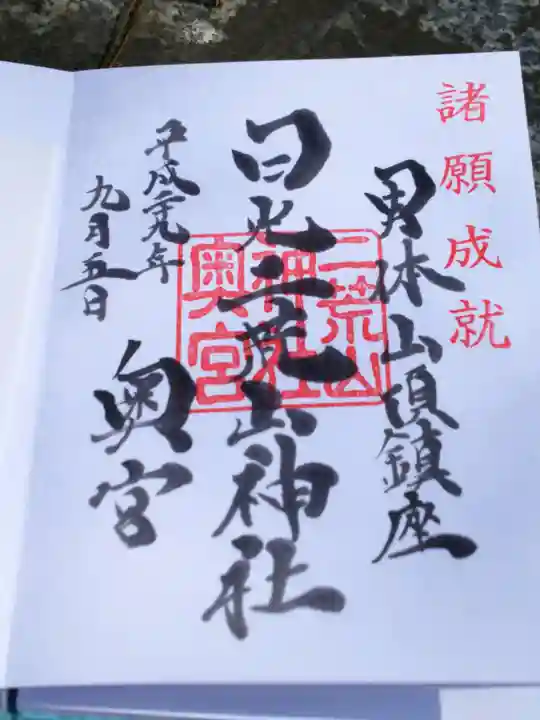 諸願成就
男体山頂鎮座
日光二荒山神社
奥宮
二荒山
神社
奥宮
平成二九年
九月五日